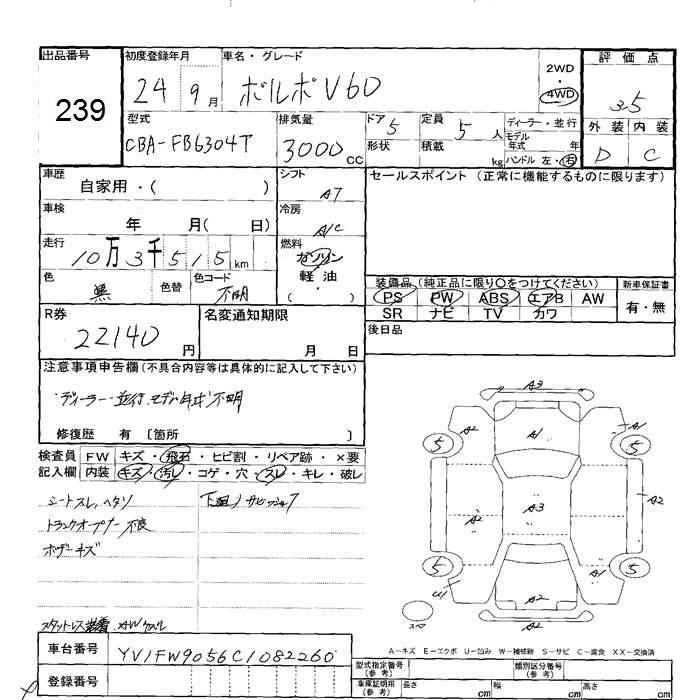 出品番号 初度登録年月 車名・グレード 評価点
239 24 9月 ボルボ V60 2WD・4WD 3.5
型式 排気量 ドア 5 定員 5人 ディーラー・並行 外装 内装
CBA-FB6304T 3000cc 形状 積載 kg モデル年式 年 ハンドル 左・右 D C
車歴 シフト セールスポイント (正常に機能するものに限ります)
自家用・( ) AT
車検 冷房
年 月( 日) A/C
走行 燃料
10万3千515km ガソリン
色 色替 色コード 軽油
黒 不明 ・( )
装備品(純正品に限り○をつけてください) 新車保証書
PS PW ABS エアB AW 有・無
SR ナビ TV カワ
R券 名変通知期限 後日品
22140円 月 日
注意事項申告欄(不具合内容等は具体的に記入して下さい)
ディーラー・並行、モデル年式不明
修復歴 有 〔箇所 〕
検査員 FW キズ・飛石・ヒビ割・リペア跡・×要
記入欄 内装 キズ・汚レ・コゲ・穴・スレ・キレ・破レ
シートスレ、ヘタリ 下廻りサビ
トランクオープナー不良
ボデーキズ
スタットレス装着 AW
A3
A2 A1 A1
5 5
A2 A3 A2
5 5
A1
U1 A2
スペ
A2
A-キズ E-エクボ U-凹み W-補修跡 S-サビ C-腐食 XX-交換済
車台番号 YV1FW9056C1082260
型式指定番号(参考) 類別区分番号(参考)
登録番号 車庫証明用(参考) 長さ cm 幅 cm 高さ cm